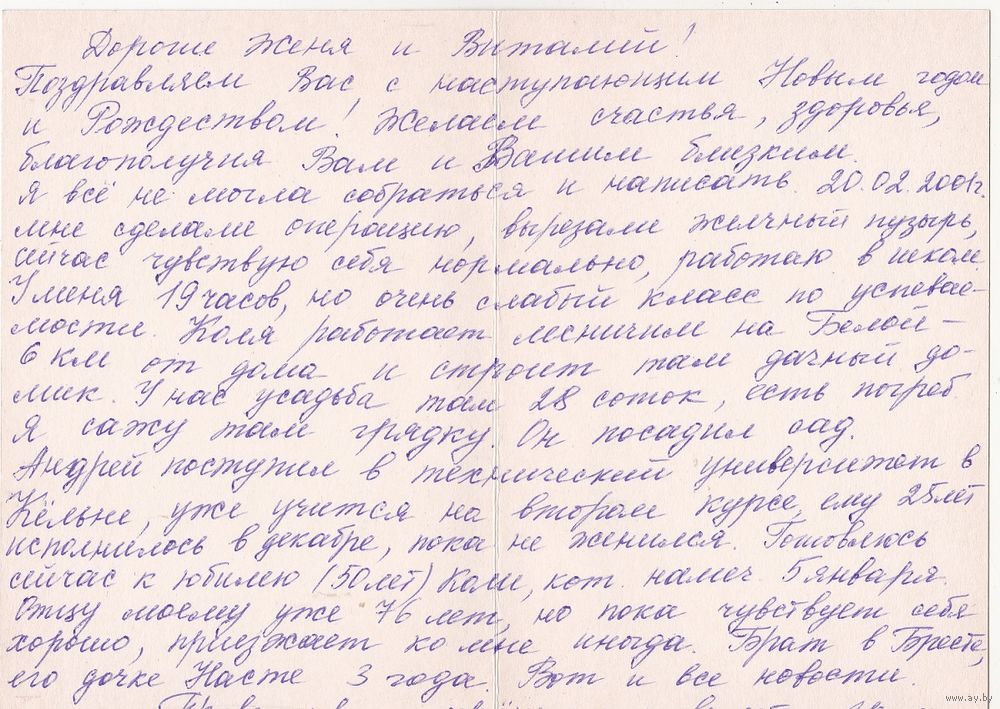 Дорогие Женя и Виталий!
Поздравляем Вас с наступающим Новым годом
и Рождеством! Желаем счастья, здоровья,
благополучия Вам и Вашим близким.
Я всё не могла собраться и написать. 20.02.2001г.
мне сделали операцию, вырезали желчный пузырь,
сейчас чувствую себя нормально, работаю в школе.
У меня 19 часов, но очень слабый класс по успевае-
мости. Коля работает лесничим на Белой –
6 км от дома и строит там дачный до-
мик. У нас усадьба там 28 соток, есть погреб.
Я сажу там грядку. Он посадил сад.
Андрей поступил в технический университет в
Кёльне, уже учится на втором курсе, ему 25 лет
исполнилось в декабре, пока не женился. Готовлюсь
сейчас к юбилею (50 лет) Коли, кот. намеч. 5 января.
Отцу моему уже 76 лет, но пока чувствует себя
хорошо, приезжает ко мне иногда. Брат в Бресте,
его дочке Насте 3 года. Вот и все новости.
www.ay.by